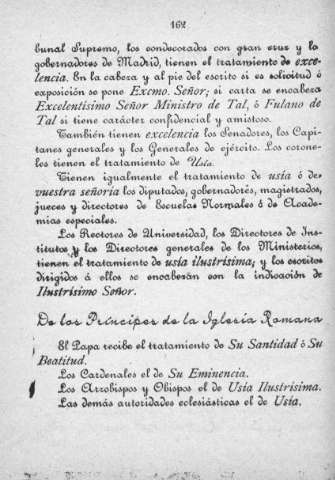 162
bunal Supremo, los condecorados con gran cruz y la
gobernadores de Madrid, tienen el tratamiento de exce-
lencia. En la cabeza y al pie del escrito si es solicitud ó
exposición se pone Excmo. Señor; si carta se encabeza
Excelentísimo Señor Ministro de Tal, ó Fulano de
Tal si tiene carácter confidencial y amistoso.
También tienen excelencia los Senadores, los Capi-
tanes generales y los Generales de ejército. Los corone-
les tienen el tratamiento de Usía.
Tienen igualmente el tratamiento de usía ó de
vuestra señoría los diputados, gobernadores, magistrados,
jueces y directores de Escuelas Normales ó de Acade-
mias especiales.
Los Rectores de Universidad, los Directores de Ins-
titutos y los Directores generales de los Ministerios,
tienen el tratamiento de usía ilustrísima; y los escritos
dirigidos á ellos se encabezan con la indicación de
Ilustrísimo Señor.
De los Príncipes de la Iglesia Romana
El Papa recibe el tratamiento de Su Santidad ó Su
Beatitud.
Los Cardenales el de Su Eminencia.
Los Arzobispos y Obispos el de Usía Ilustrísima.
Las demás autoridades eclesiásticas el de Usía.